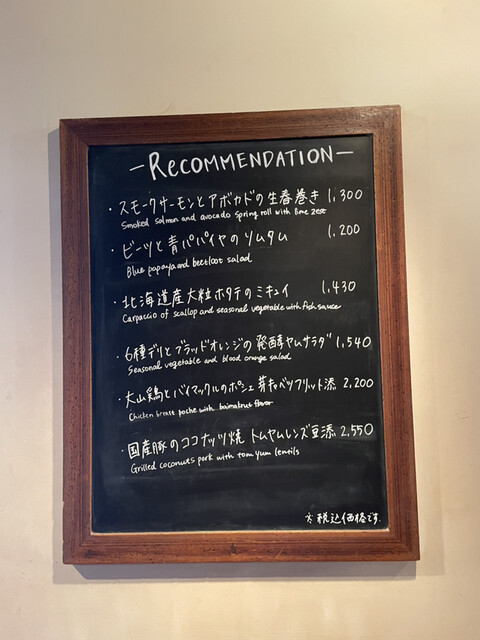 -RECOMMENDATION-
・スモークサーモンとアボカドの生春巻き 1,300
Smoked salmon and avocado spring roll with lime zest
・ビーツと青パパイヤのソムタム 1,200
Blue papaya and beetloot salad
・北海道産大粒ホタテのミキュイ 1,430
Carpaccio of scallop and seasonal vegetable with fish sauce
・6種デリとブラッドオレンジの発酵ヤムサラダ 1,540
Seasonal vegetable and blood orange salad
・大山鶏とバイマックルのポシェ 芽キャベツフリット添 2,200
Chicken breast poche with baimakrut flavor
・国産豚のココナッツ焼 トムヤムレンズ豆添 2,550
Grilled coconuts pork with tom yum lentils
※税込価格です。